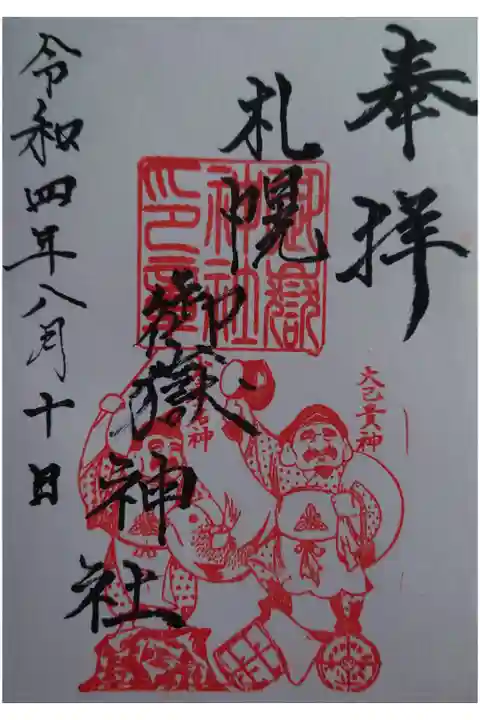 奉拝
札幌
御嶽神社
令和四年八月十日
御嶽
神社
印章
大己貴神
名神